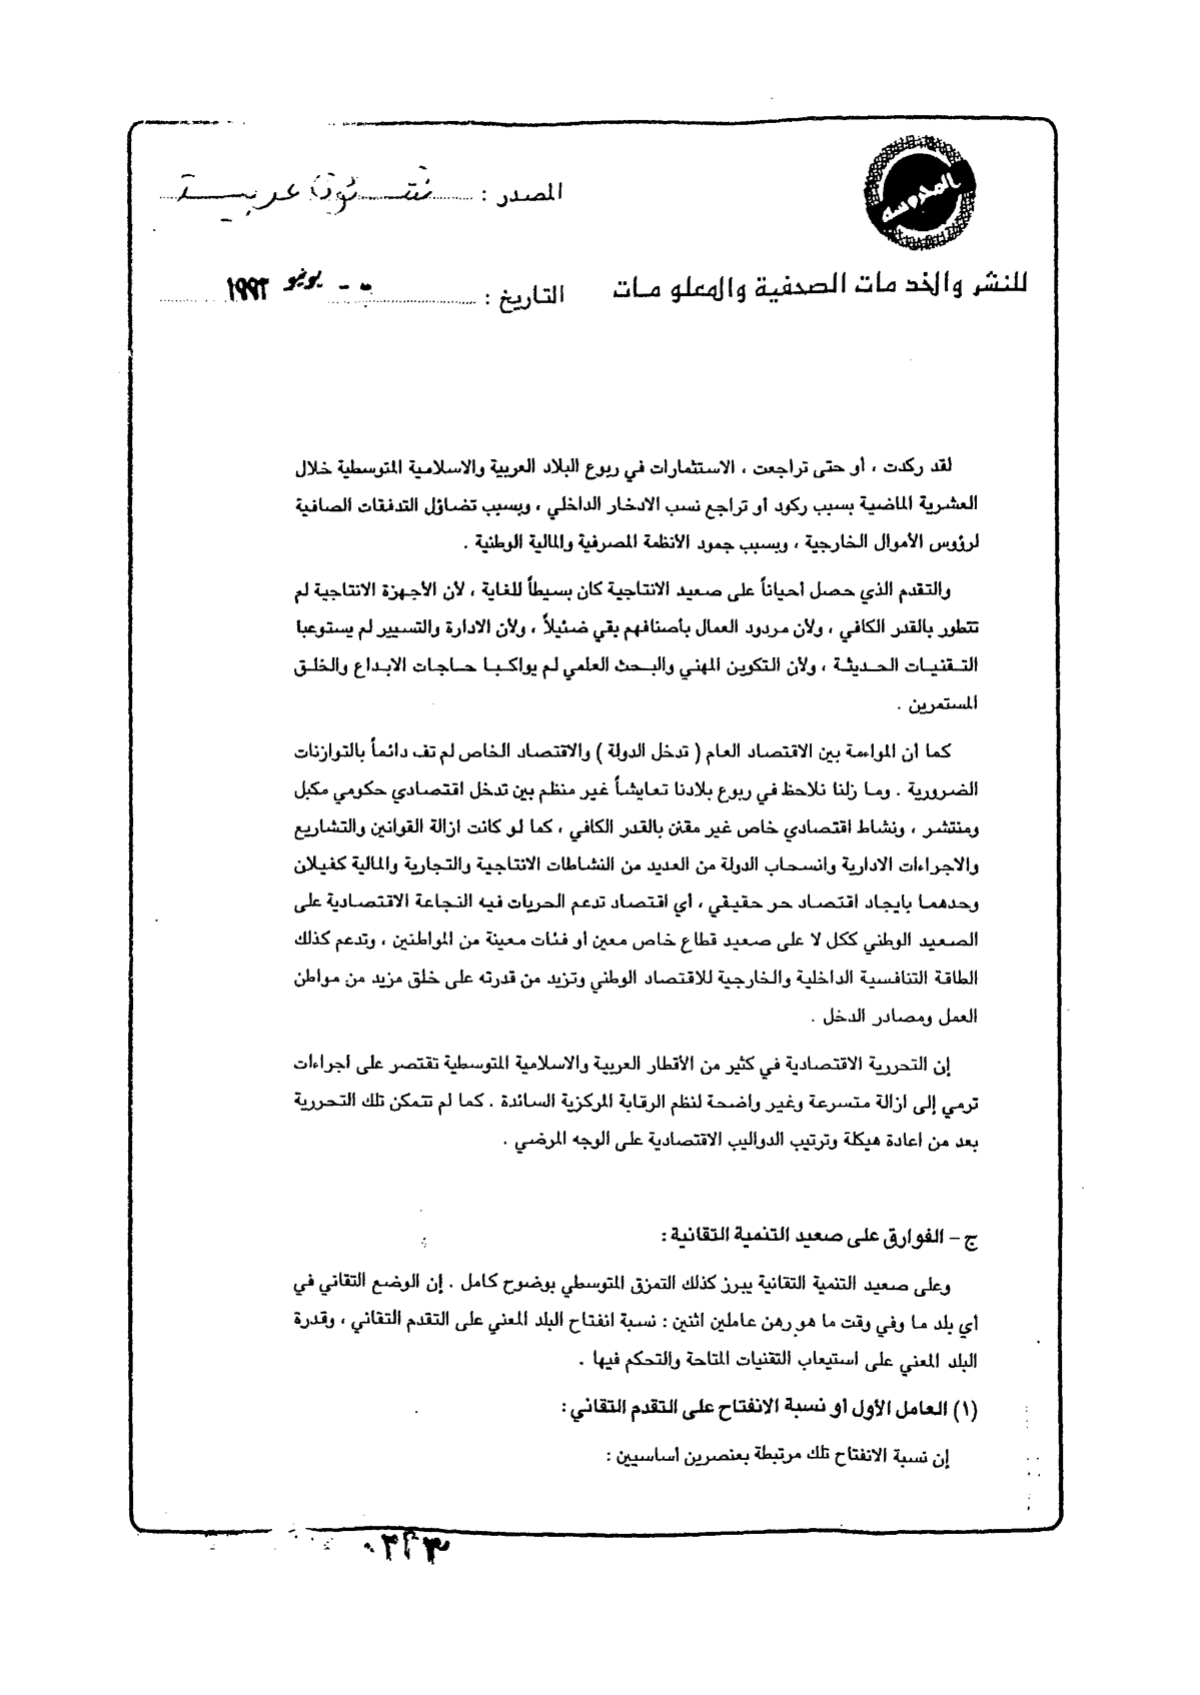 المحروسه
المصدر : شئون عربية
للنشر والخدمات الصحفية والمعلومات
التاريخ : يونيو ١٩٩٢
لقد ركدت ، أو حتى تراجعت ، الاستثمارات في ربوع البلاد العربية والاسلامية المتوسطية خلال
العشرية الماضية بسبب ركود أو تراجع نسب الادخار الداخلي ، وبسبب تضاؤل التدفقات الصافية
لرؤوس الأموال الخارجية ، وبسبب جمود الأنظمة المصرفية والمالية الوطنية .
والتقدم الذي حصل أحياناً على صعيد الانتاجية كان بسيطاً للغاية ، لأن الأجهزة الانتاجية لم
تتطور بالقدر الكافي ، ولأن مردود العمال بأصنافهم بقي ضئيلاً ، ولأن الادارة والتسيير لم يستوعبا
التقنيات الحديثة ، ولأن التكوين المهني والبحث العلمي لم يواكبا حاجات الابداع والخلق
المستمرين .
كما أن المواءمة بين الاقتصاد العام ( تدخل الدولة ) والاقتصاد الخاص لم تف دائماً بالتوازنات
الضرورية . وما زلنا نلاحظ في ربوع بلادنا تعايشاً غير منظم بين تدخل اقتصادي حكومي مكبل
ومنتشر ، ونشاط اقتصادي خاص غير مقنن بالقدر الكافي ، كما لو كانت ازالة القوانين والتشاريع
والاجراءات الادارية وانسحاب الدولة من العديد من النشاطات الانتاجية والتجارية والمالية كفيلان
وحدهما بايجاد اقتصاد حر حقيقي ، أي اقتصاد تدعم الحريات فيه النجاعة الاقتصادية على
الصعيد الوطني ككل لا على صعيد قطاع خاص معين أو فئات معينة من المواطنين ، وتدعم كذلك
الطاقة التنافسية الداخلية والخارجية للاقتصاد الوطني وتزيد من قدرته على خلق مزيد من مواطن
العمل ومصادر الدخل .
إن التحررية الاقتصادية في كثير من الأقطار العربية والاسلامية المتوسطية تقتصر على اجراءات
ترمي إلى ازالة متسرعة وغير واضحة لنظم الرقابة المركزية السائدة . كما لم تتمكن تلك التحررية
بعد من اعادة هيكلة وترتيب الدواليب الاقتصادية على الوجه المرضي .
ج – الفوارق على صعيد التنمية التقانية :
وعلى صعيد التنمية التقانية يبرز كذلك التمزق المتوسطي بوضوح كامل . إن الوضع التقاني في
أي بلد ما وفي وقت ما هو رهن عاملين اثنين : نسبة انفتاح البلد المعني على التقدم التقاني ، وقدرة
البلد المعني على استيعاب التقنيات المتاحة والتحكم فيها .
(١) العامل الأول أو نسبة الانفتاح على التقدم التقاني :
إن نسبة الانفتاح تلك مرتبطة بعنصرين أساسيين :